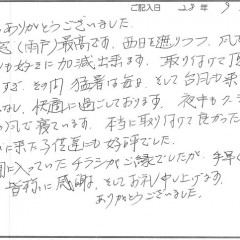 ご記入日 28年9
ありがとうございました.
窓(雨戸)最高です. 西日を遮りつつ、風
も好きに加減出来ます. 取りつけて頂
すぐ、その円 猛暑は毎日、そして台風も来
なし、快適に過ごしております. 夜中も
の風で寝ています. 本当に取り付けて良かった
に来た子供達にも好評でした.
に入っていたチラシがご縁でしたが、手早く
皆様に感謝、そしてお礼申し上げます.
ありがとうございました.